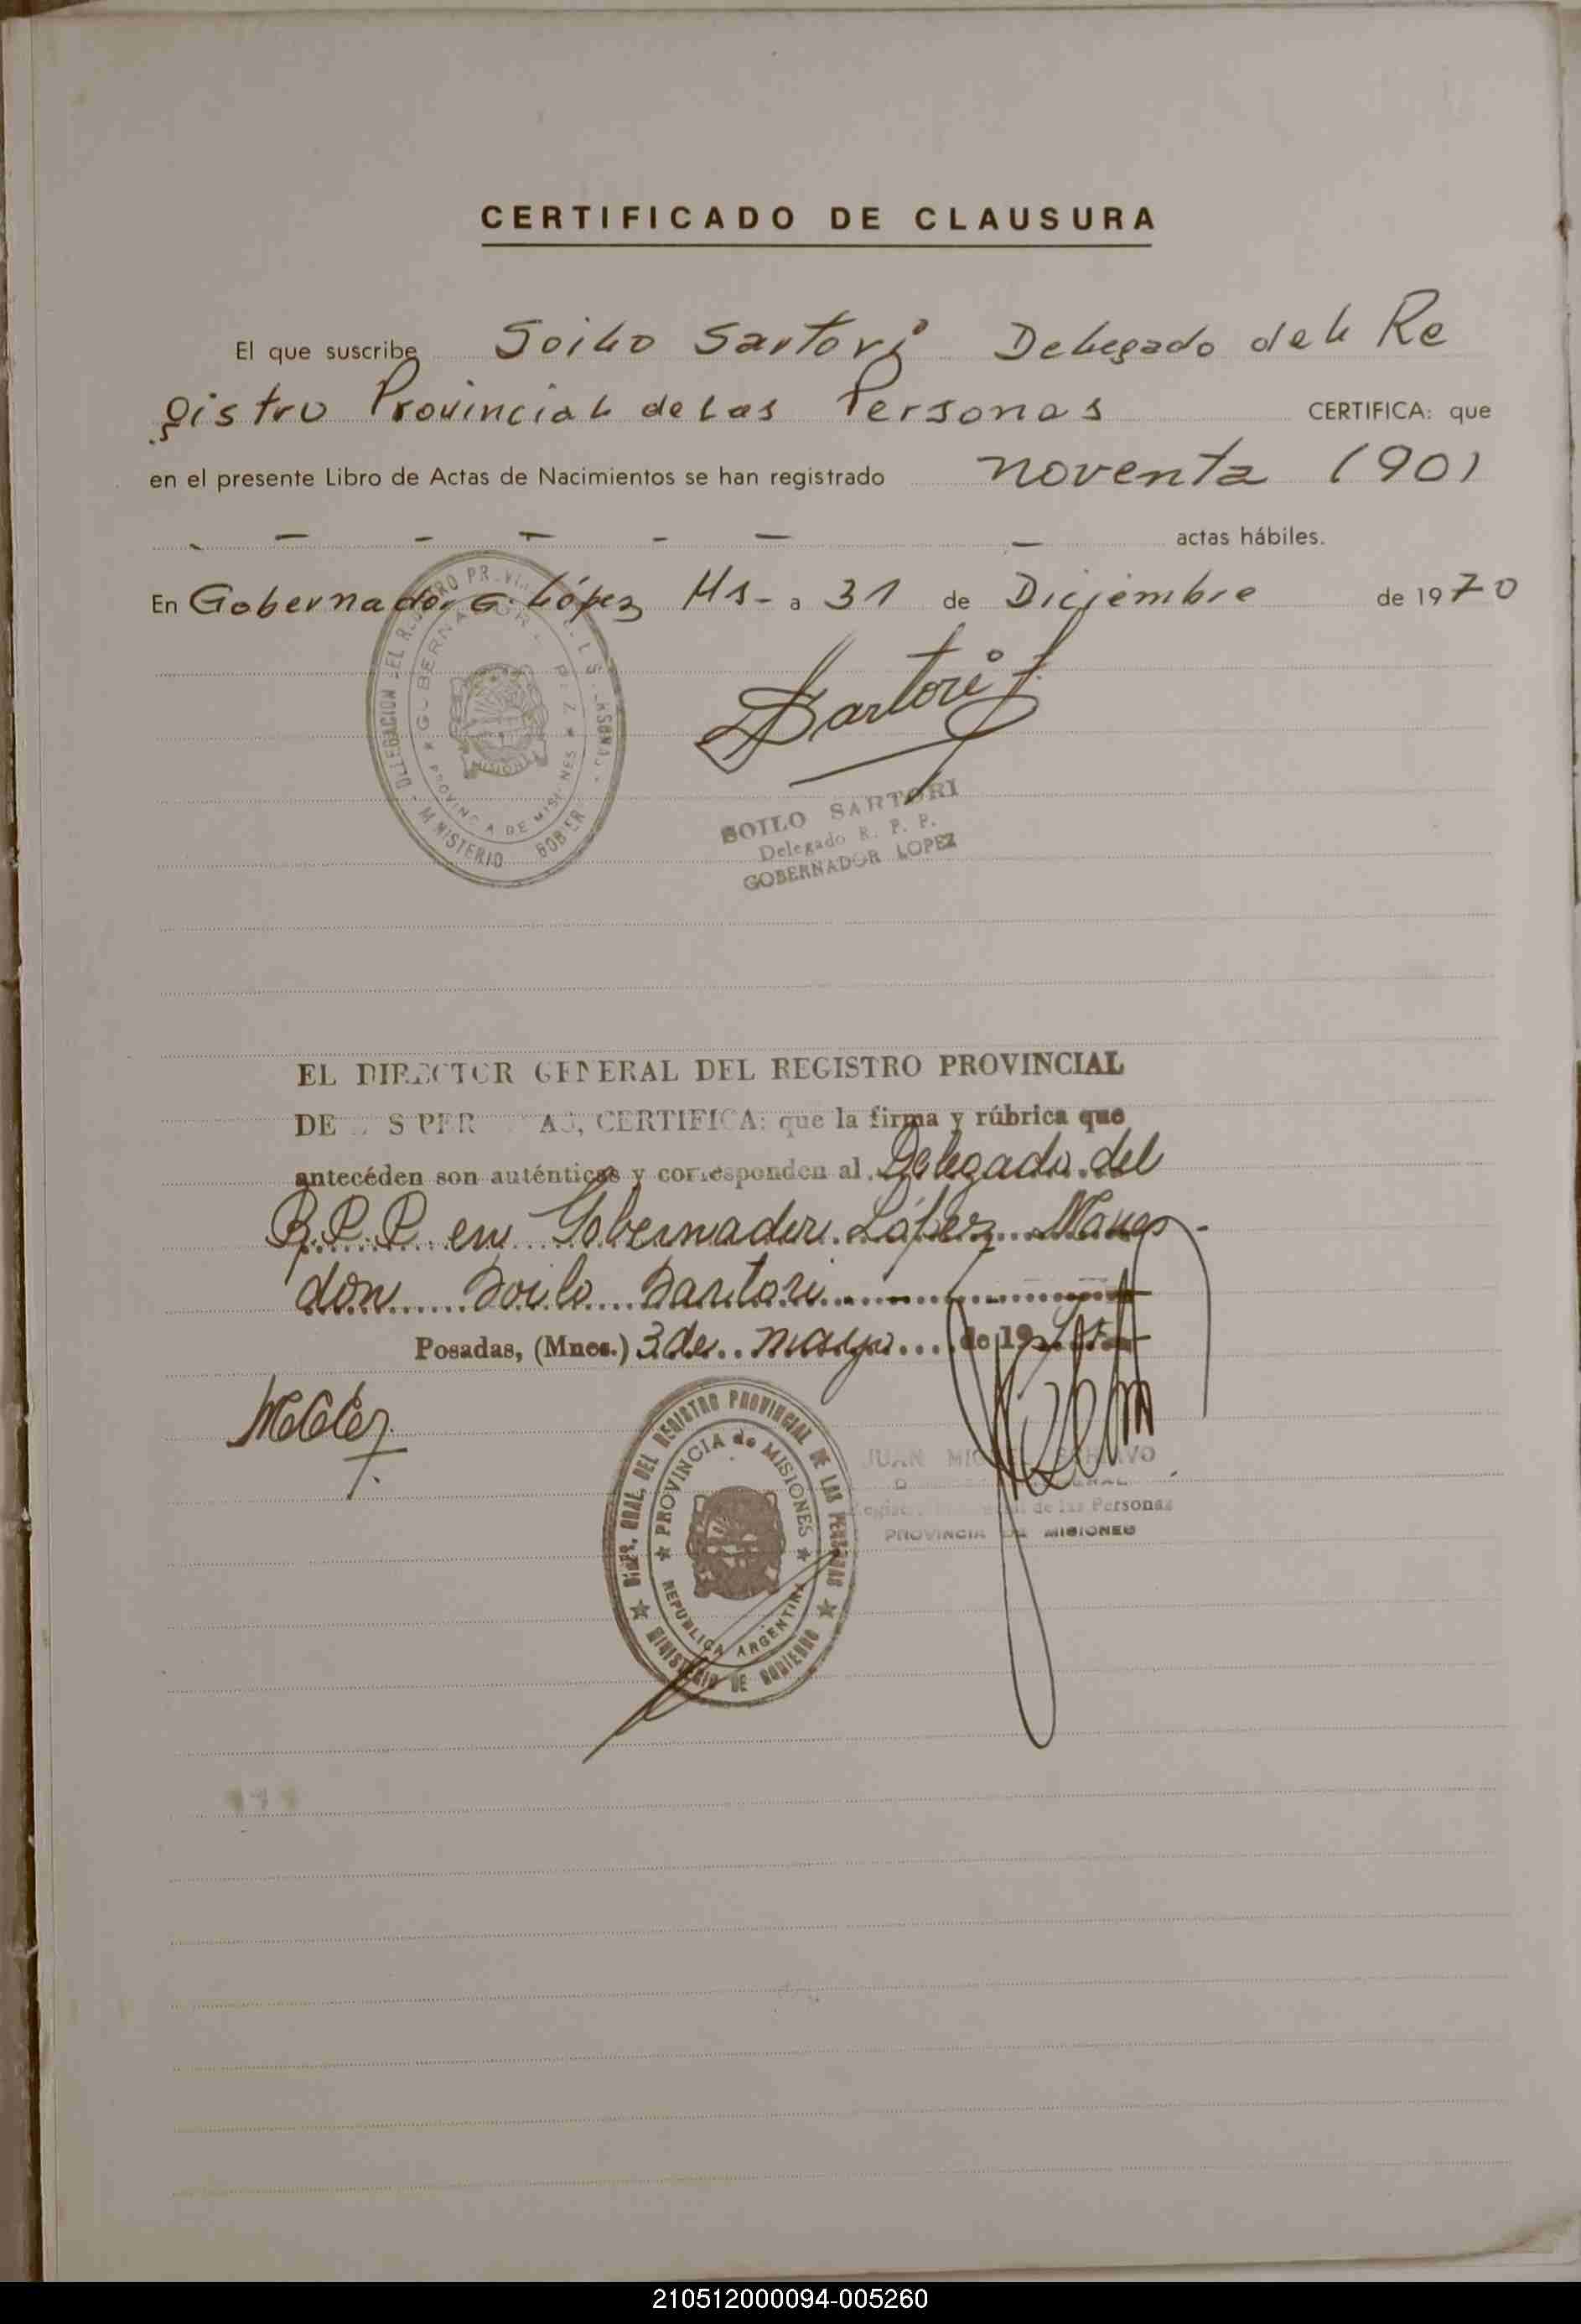 CERTIFICADO DE CLAUSURA
El que suscribe Soilo Sartori Delegado del Re
gistro Provincial de las Personas CERTIFICA: que
en el presente Libro de Actas de Nacimientos se han registrado noventa (90)
- - - - - - - actas hábiles.
En Gobernador López Ms- a 31 de Diciembre de 1970
Sartori
SOILO SARTORI
Delegado R. P. P.
GOBERNADOR LOPEZ
EL DIRECTOR GENERAL DEL REGISTRO PROVINCIAL
DE S PER AS, CERTIFICA: que la firma y rúbrica que
antecéden son auténticas y corresponden al Delegado del
R.P.P. en Gobernador López
don Soilo Sartori
Posadas, (Mnes.) 3 de mayo de 19
DIREC. GRAL. DEL REGISTRO PROVINCIAL DE LAS PERSONAS
PROVINCIA de MISIONES
REPUBLICA ARGENTINA
MINISTERIO DE GOBIERNO
JUAN
de las Personas
PROVINCIA DE MISIONES
210512000094-005260